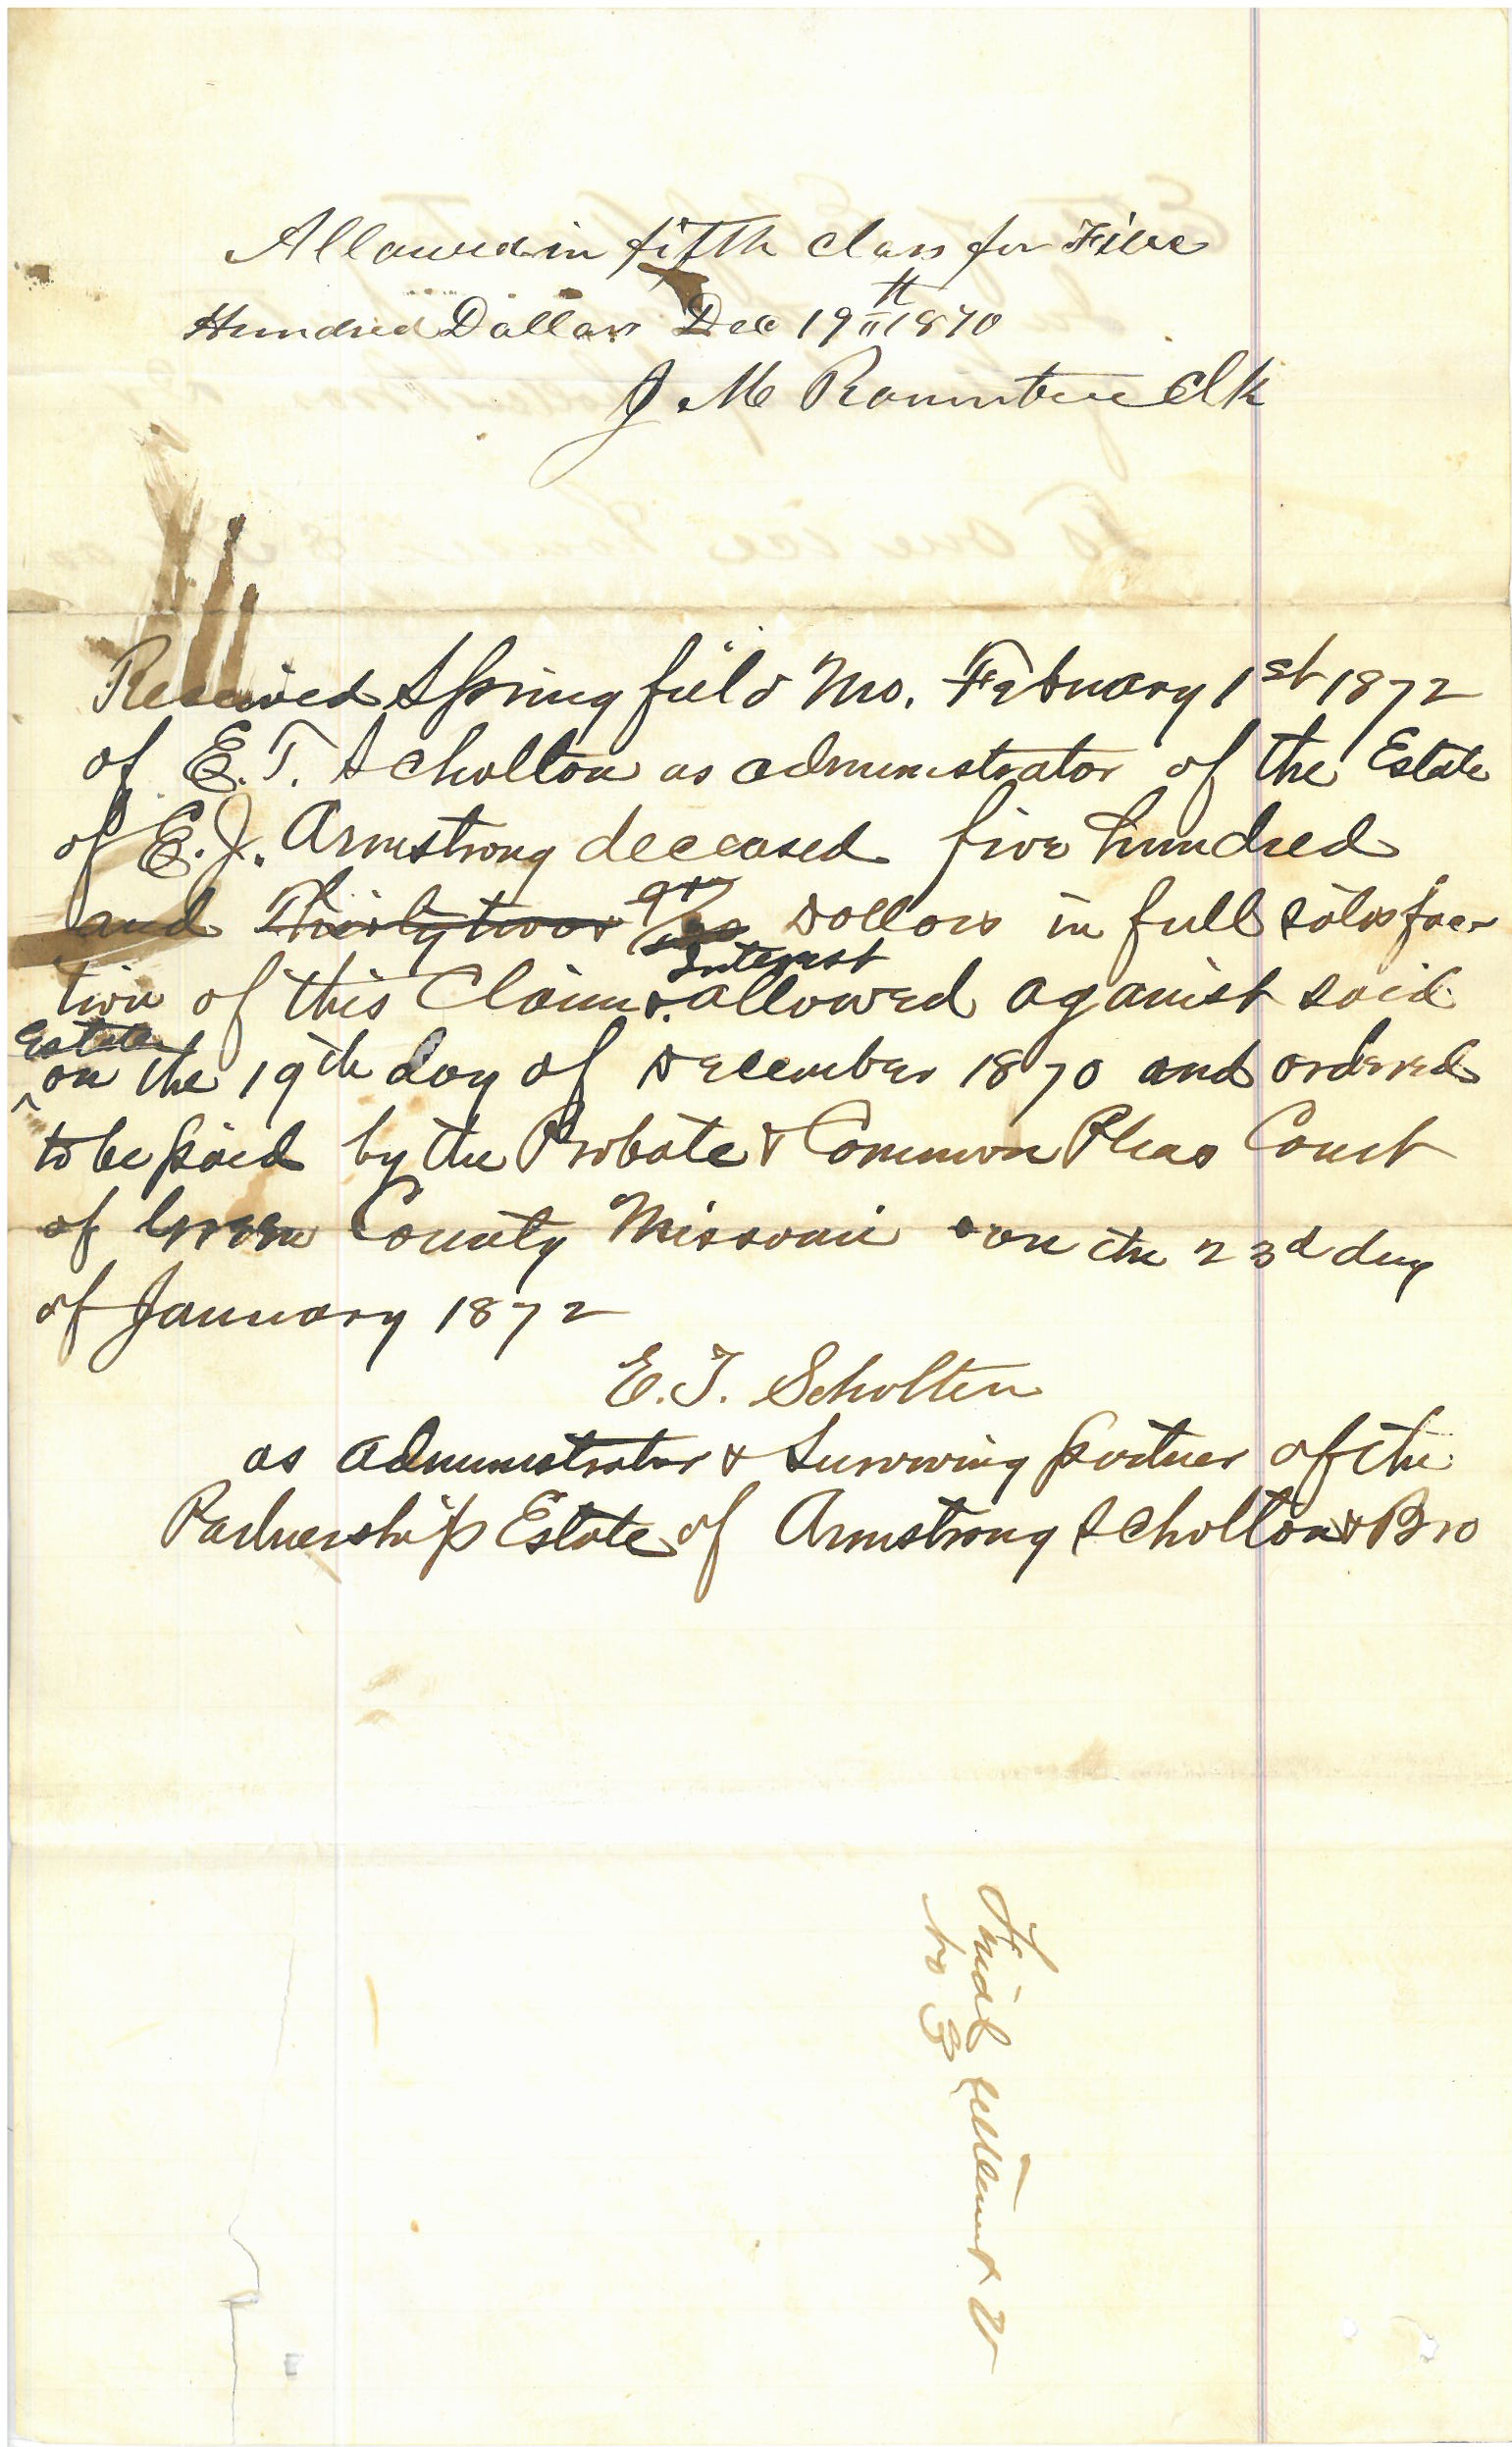 Allowed in fifth class for Five
Hundred Dollars Dec 19th 1870
J. M Rountree Clk
Received Springfield Mo. February 1st 1872
of E. T. Scholton as administrator of the Estate
of E. J. Armstrong deceased five hundred
and Thirty two & Dollars in full satisfac-
Interest
tion of this Claim & allowed against said
Estate
on the 19th day of December 1870 and ordered
to be paid by the Probate & Common Pleas Court
of Green County Missouri on the 23d day
of January 1872
E. T. Scholten
as administrator & Surviving partner of the
Partnership Estate of Armstrong Scholton & Bro
Final settlement
No 3